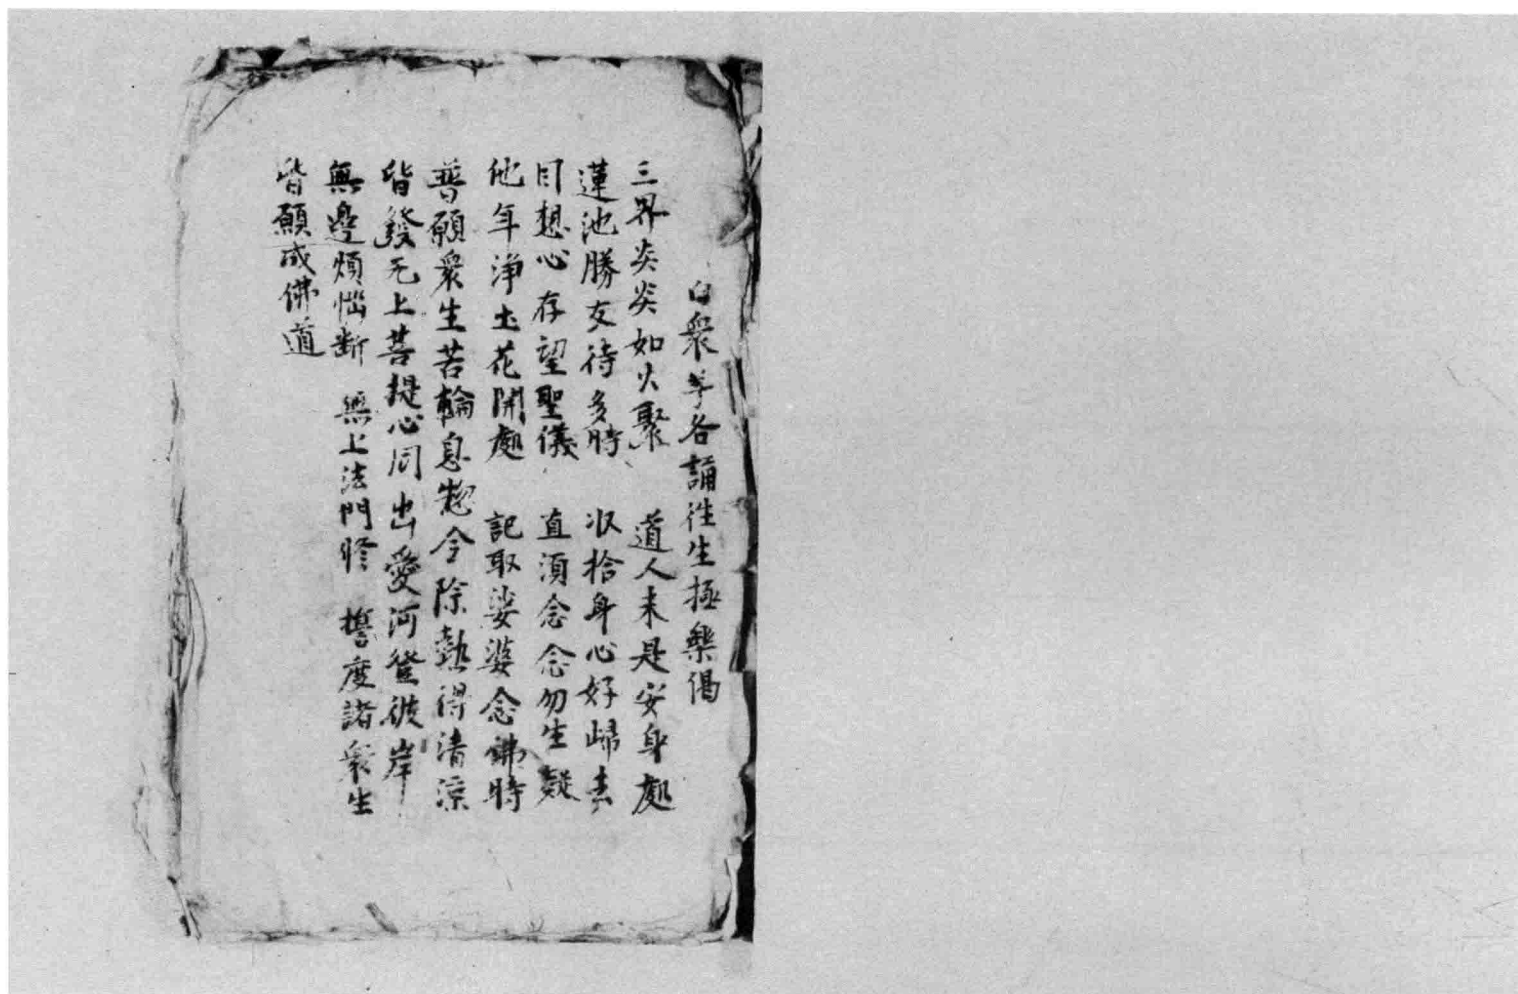 白衆等各誦往生極樂偈
三界炎炎如火聚 道人未是安身處
蓮池勝友待多時 收拾身心好歸去
目想心存望聖儀 直須念念勿生疑
他年淨土花開處 記取娑婆念佛時
普願衆生苦輪息惣令除熱得清涼
皆發无上菩提心同出愛河登彼岸
無邊煩惱斷 無上法門修 誓度諸衆生
皆願成佛道